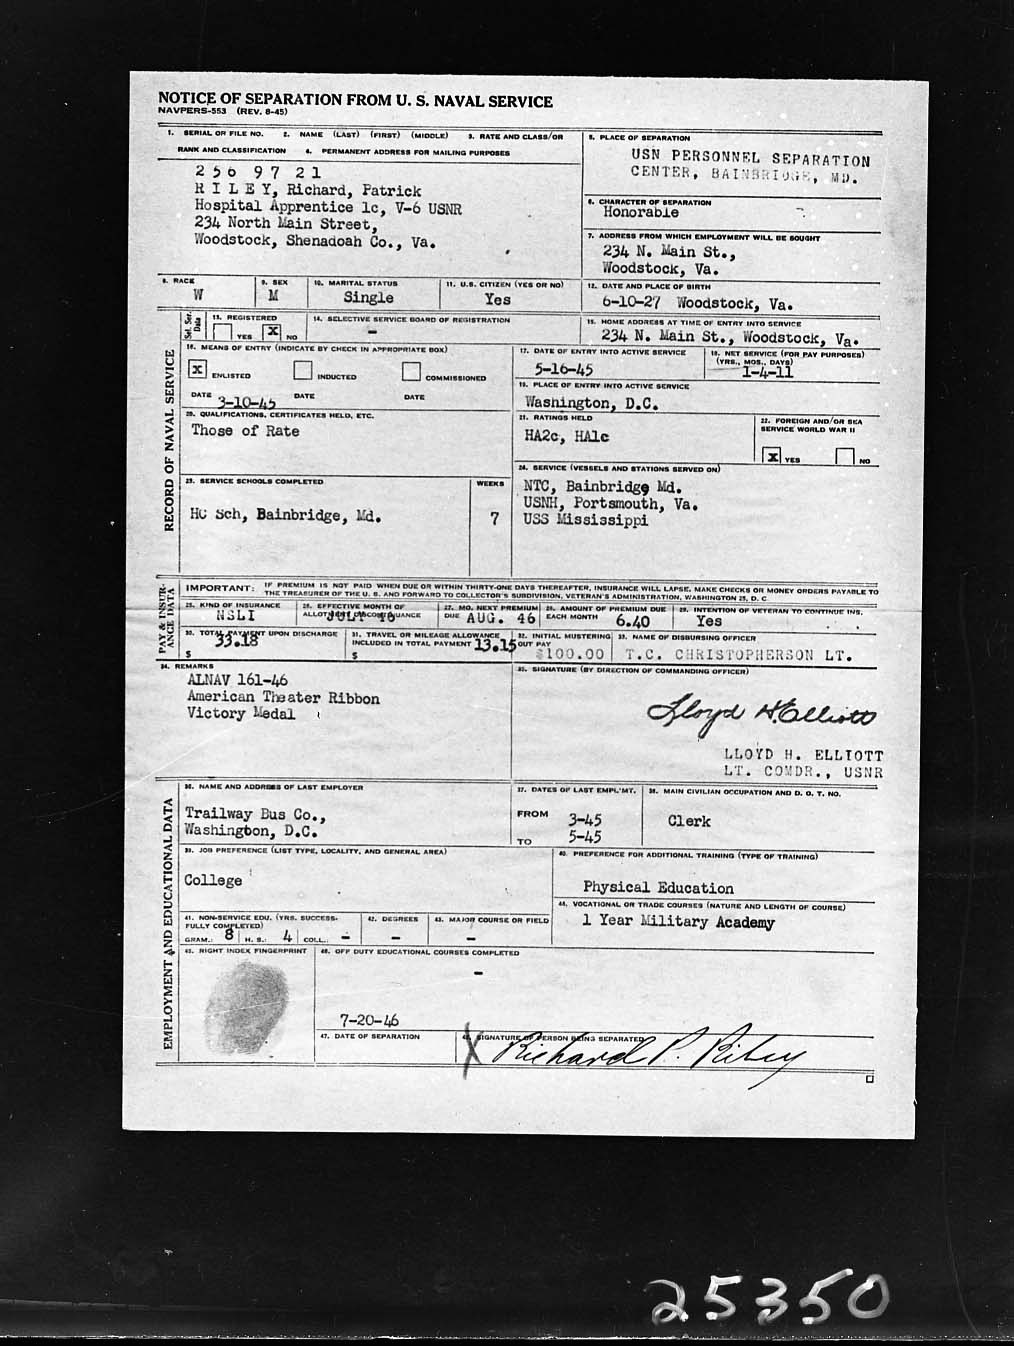 NOTICE OF SEPARATION FROM U. S. NAVAL SERVICE
NAVPERS-553 (REV. 8-45)
1. SERIAL OR FILE NO. 2. NAME (LAST) (FIRST) (MIDDLE) 3. RATE AND CLASS/OR
RANK AND CLASSIFICATION 4. PERMANENT ADDRESS FOR MAILING PURPOSES
256 97 21
R I L E Y, Richard, Patrick
Hospital Apprentice 1c, V-6 USNR
234 North Main Street,
Woodstock, Shenadoah Co., Va.
5. PLACE OF SEPARATION
USN PERSONNEL SEPARATION
CENTER, BAINBRIDGE, MD.
6. CHARACTER OF SEPARATION
Honorable
7. ADDRESS FROM WHICH EMPLOYMENT WILL BE SOUGHT
234 N. Main St.,
Woodstock, Va.
8. RACE
W
9. SEX
M
10. MARITAL STATUS
Single
11. U.S. CITIZEN (YES OR NO)
Yes
12. DATE AND PLACE OF BIRTH
6-10-27 Woodstock, Va.
RECORD OF NAVAL SERVICE
Sel. Ser. Data
13. REGISTERED
YES X NO
14. SELECTIVE SERVICE BOARD OF REGISTRATION
-
15. HOME ADDRESS AT TIME OF ENTRY INTO SERVICE
234 N. Main St., Woodstock, Va.
16. MEANS OF ENTRY (INDICATE BY CHECK IN APPROPRIATE BOX)
X ENLISTED INDUCTED COMMISSIONED
DATE 3-10-45 DATE DATE
17. DATE OF ENTRY INTO ACTIVE SERVICE
5-16-45
18. NET SERVICE (FOR PAY PURPOSES)
(YRS., MOS., DAYS)
1-4-11
19. PLACE OF ENTRY INTO ACTIVE SERVICE
Washington, D.C.
20. QUALIFICATIONS, CERTIFICATES HELD, ETC.
Those of Rate
21. RATINGS HELD
HA2c, HA1c
22. FOREIGN AND/OR SEA
SERVICE WORLD WAR II
X YES NO
23. SERVICE SCHOOLS COMPLETED WEEKS
HC Sch, Bainbridge, Md. 7
24. SERVICE (VESSELS AND STATIONS SERVED ON)
NTC, Bainbridge Md.
USNH, Portsmouth, Va.
USS Mississippi
PAY & INSUR-
ANCE DATA
IMPORTANT: IF PREMIUM IS NOT PAID WHEN DUE OR WITHIN THIRTY-ONE DAYS THEREAFTER, INSURANCE WILL LAPSE. MAKE CHECKS OR MONEY ORDERS PAYABLE TO
THE TREASURER OF THE U. S. AND FORWARD TO COLLECTOR'S SUBDIVISION, VETERAN'S ADMINISTRATION, WASHINGTON 25, D. C.
25. KIND OF INSURANCE
NSLI
26. EFFECTIVE MONTH OF
ALLOTMENT DISCONTINUANCE
JULY 46
27. MO. NEXT PREMIUM
DUE AUG. 46
28. AMOUNT OF PREMIUM DUE
EACH MONTH 6.40
29. INTENTION OF VETERAN TO CONTINUE INS.
Yes
30. TOTAL PAYMENT UPON DISCHARGE
$ 33.18
31. TRAVEL OR MILEAGE ALLOWANCE
INCLUDED IN TOTAL PAYMENT
$ 13.15
32. INITIAL MUSTERING
OUT PAY
$100.00
33. NAME OF DISBURSING OFFICER
T.C. CHRISTOPHERSON LT.
34. REMARKS
ALNAV 161-46
American Theater Ribbon
Victory Medal
35. SIGNATURE (BY DIRECTION OF COMMANDING OFFICER)
Lloyd H. Elliott
LLOYD H. ELLIOTT
LT. COMDR., USNR
EMPLOYMENT AND EDUCATIONAL DATA
36. NAME AND ADDRESS OF LAST EMPLOYER
Trailway Bus Co.,
Washington, D.C.
37. DATES OF LAST EMPL'MT.
FROM 3-45
TO 5-45
38. MAIN CIVILIAN OCCUPATION AND D. O. T. NO.
Clerk
39. JOB PREFERENCE (LIST TYPE, LOCALITY, AND GENERAL AREA)
College
40. PREFERENCE FOR ADDITIONAL TRAINING (TYPE OF TRAINING)
Physical Education
41. NON-SERVICE EDU. (YRS. SUCCESS-
FULLY COMPLETED)
GRAM.: 8 H. S.: 4 COLL.: -
42. DEGREES
-
43. MAJOR COURSE OR FIELD
-
44. VOCATIONAL OR TRADE COURSES (NATURE AND LENGTH OF COURSE)
1 Year Military Academy
45. RIGHT INDEX FINGERPRINT
46. OFF DUTY EDUCATIONAL COURSES COMPLETED
-
7-20-46
47. DATE OF SEPARATION
X
48. SIGNATURE OF PERSON BEING SEPARATED
Richard P. Riley
25350